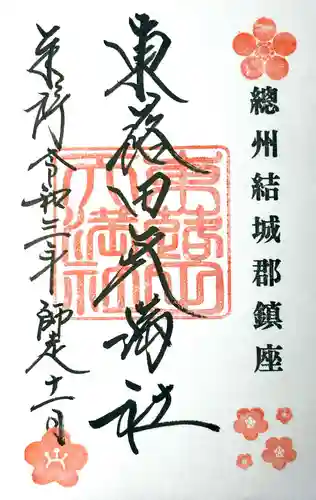 總州結城郡鎮座
東蕗田天満社
奉拝 令和三年 師走十一日
東蕗田
天満社